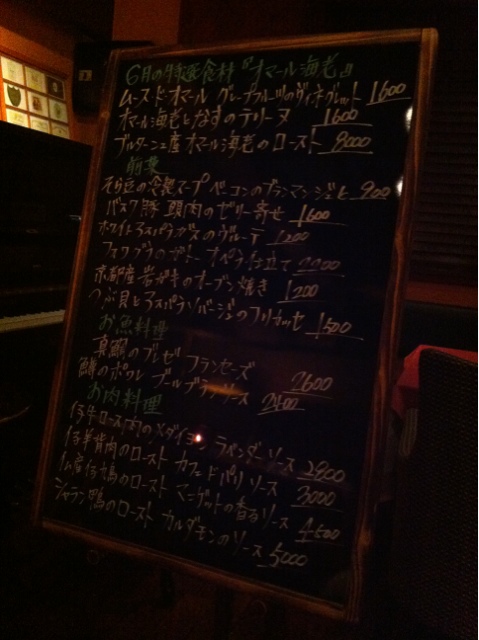 6月の特選食材『オマール海老』
ムース ド オマール グレープフルーツのヴィネグレット 1600
オマール海老となすのテリーヌ 1600
ブルターニュ産オマール海老のロースト 8000
前菜
そら豆の冷製スープ ベーコンのブランマンジェと 900
バスク豚 頭肉のゼリー寄せ 1600
ホワイトアスパラガスのヴルーテ 1200
フォワグラのガトー オペラ仕立て 2200
京都産岩ガキのオーブン焼き 1200
つぶ貝とアスパラソバージュのフリカッセ 1500
お魚料理
真鯛のブレゼ フランセーズ 2600
鱸のポワレ ブールブランソース 2400
お肉料理
仔牛ロース肉のメダイヨン ラベンダーソース 2800
仔羊背肉のロースト カフェドパリソース 3000
仏産仔鳩のロースト マニゲットの香るソース 4500
シャラン鴨のロースト カルダモンのソース 5000